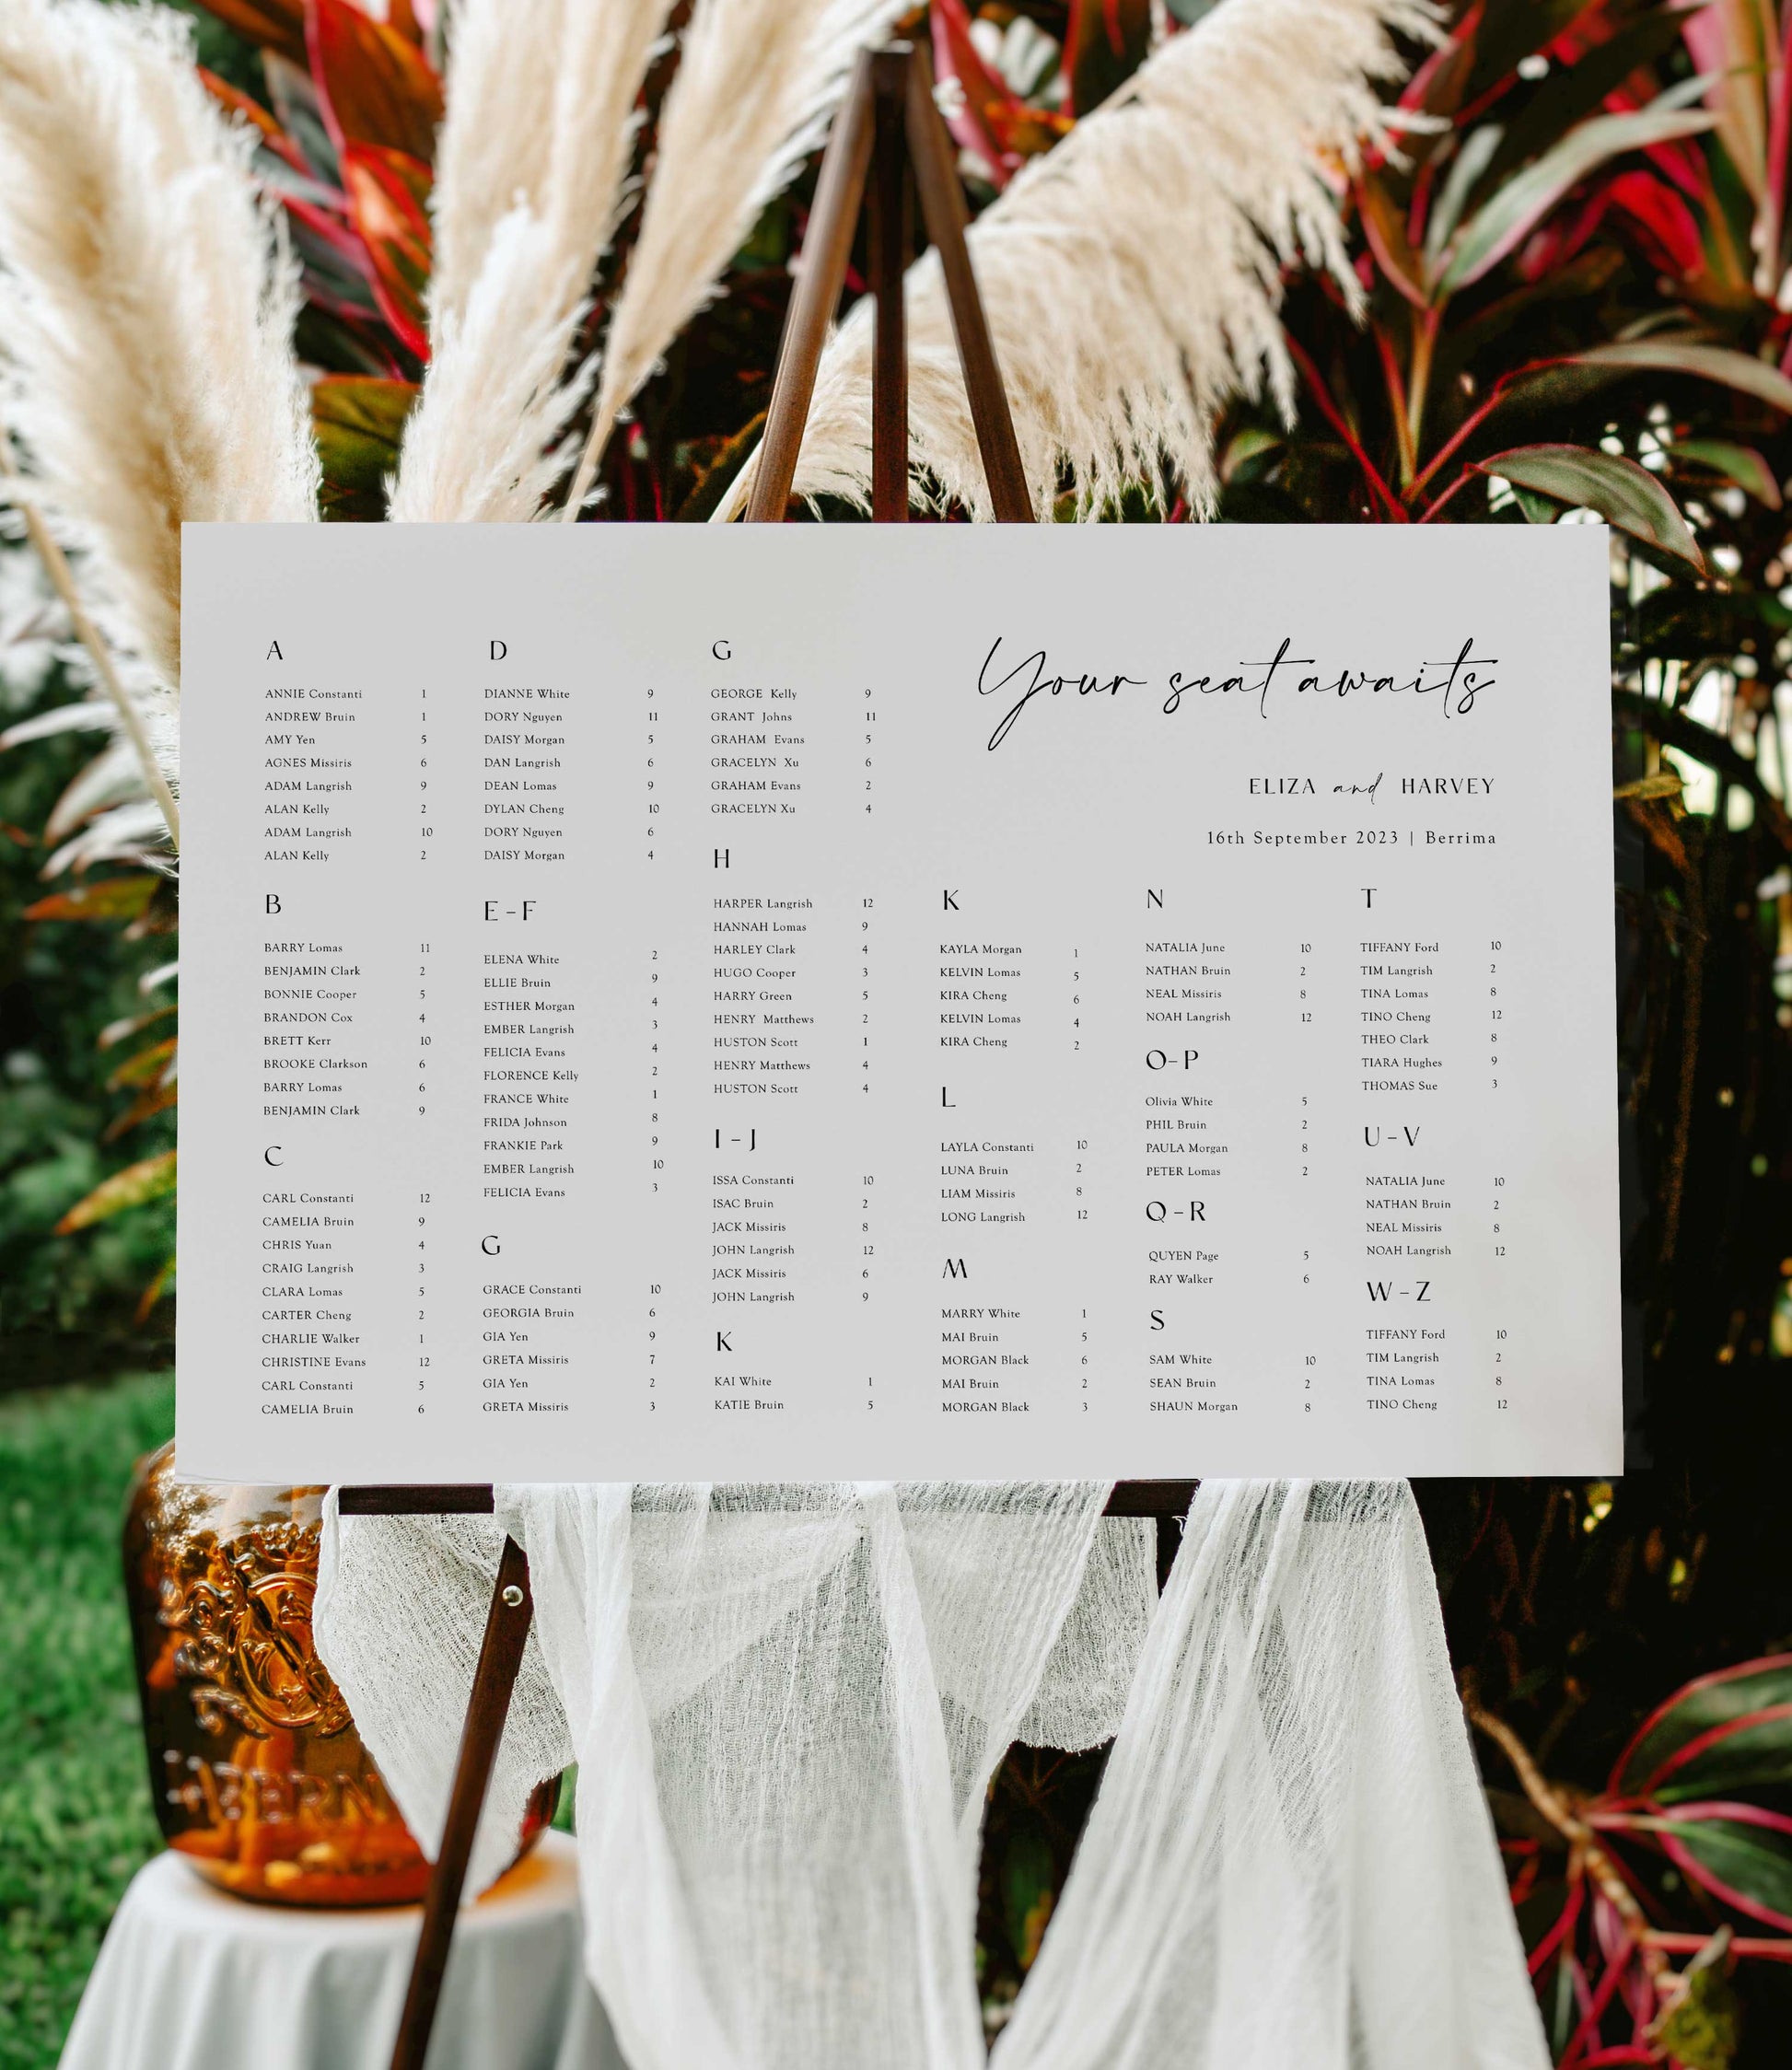 Your seat awaits
ELIZA and HARVEY
16th September 2023 | Berrima
A
ANNIE Constanti 1
ANDREW Bruin 1
AMY Yen 5
AGNES Missiris 6
ADAM Langrish 9
ALAN Kelly 2
ADAM Langrish 10
ALAN Kelly 2
B
BARRY Lomas 11
BENJAMIN Clark 2
BONNIE Cooper 5
BRANDON Cox 4
BRETT Kerr 10
BROOKE Clarkson 6
BARRY Lomas 6
BENJAMIN Clark 9
C
CARL Constanti 12
CAMELIA Bruin 9
CHRIS Yuan 4
CRAIG Langrish 3
CLARA Lomas 5
CARTER Cheng 2
CHARLIE Walker 1
CHRISTINE Evans 12
CARL Constanti 5
CAMELIA Bruin 6
D
DIANNE White 9
DORY Nguyen 11
DAISY Morgan 5
DAN Langrish 6
DEAN Lomas 9
DYLAN Cheng 10
DORY Nguyen 6
DAISY Morgan 4
E-F
ELENA White 2
ELLIE Bruin 9
ESTHER Morgan 4
EMBER Langrish 3
FELICIA Evans 4
FLORENCE Kelly 2
FRANCE White 1
FRIDA Johnson 8
FRANKIE Park 9
EMBER Langrish 10
FELICIA Evans 3
G
GRACE Constanti 10
GEORGIA Bruin 6
GIA Yen 9
GRETA Missiris 7
GIA Yen 2
GRETA Missiris 3
G
GEORGE Kelly 9
GRANT Johns 11
GRAHAM Evans 5
GRACELYN Xu 6
GRAHAM Evans 2
GRACELYN Xu 4
H
HARPER Langrish 12
HANNAH Lomas 9
HARLEY Clark 4
HUGO Cooper 3
HARRY Green 5
HENRY Matthews 2
HUSTON Scott 1
HENRY Matthews 4
HUSTON Scott 4
I-J
ISSA Constanti 10
ISAC Bruin 2
JACK Missiris 8
JOHN Langrish 12
JACK Missiris 6
JOHN Langrish 9
K
KAI White 1
KATIE Bruin 5
K
KAYLA Morgan 1
KELVIN Lomas 5
KIRA Cheng 6
KELVIN Lomas 4
KIRA Cheng 2
L
LAYLA Constanti 10
LUNA Bruin 2
LIAM Missiris 8
LONG Langrish 12
M
MARRY White 1
MAI Bruin 5
MORGAN Black 6
MAI Bruin 2
MORGAN Black 3
N
NATALIA June 10
NATHAN Bruin 2
NEAL Missiris 8
NOAH Langrish 12
O-P
Olivia White 5
PHIL Bruin 2
PAULA Morgan 8
PETER Lomas 2
Q-R
QUYEN Page 5
RAY Walker 6
S
SAM White 10
SEAN Bruin 2
SHAUN Morgan 8
T
TIFFANY Ford 10
TIM Langrish 2
TINA Lomas 8
TINO Cheng 12
THEO Clark 8
TIARA Hughes 9
THOMAS Sue 3
U-V
NATALIA June 10
NATHAN Bruin 2
NEAL Missiris 8
NOAH Langrish 12
W-Z
TIFFANY Ford 10
TIM Langrish 2
TINA Lomas 8
TINO Cheng 12